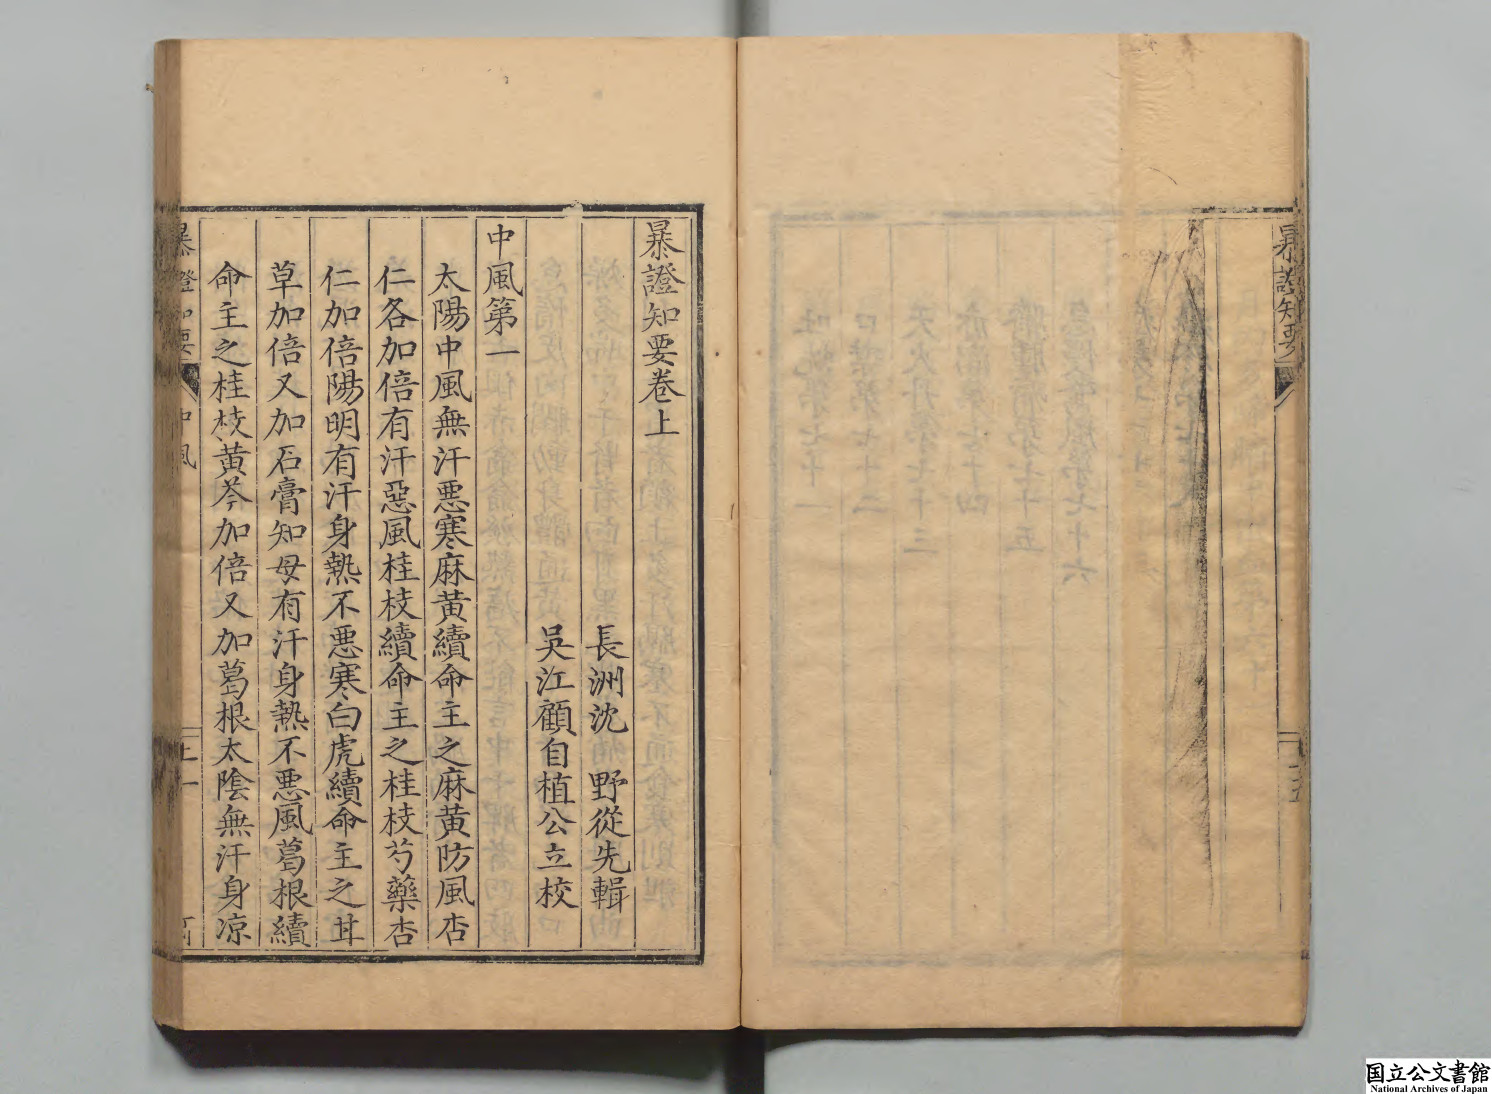 暴證知要
暴證知要卷上
長洲沈　野從先輯
吳江顧自植公立校
中風第一
太陽中風無汗惡寒麻黃續命主之麻黃防風杏
仁各加倍有汗惡風桂枝續命主之桂枝芍藥杏
仁加倍陽明有汗身熱不惡寒白虎續命主之甘
草加倍又加石膏知母有汗身熱不惡風葛根續
命主之桂枝黃芩加倍又加葛根太陰無汗身凉
暴證知要
中風
上一
国立公文書館
National Archives of Japan